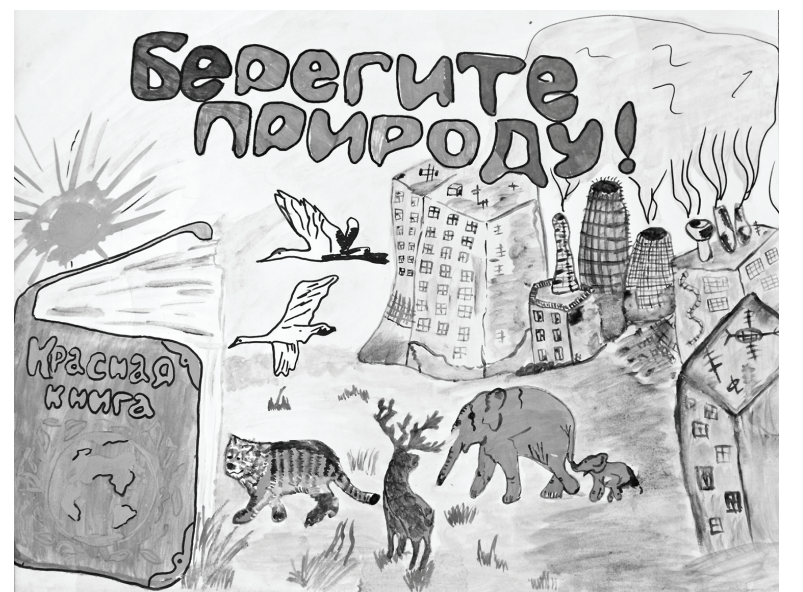 Берегите
природу!
Красная
книга